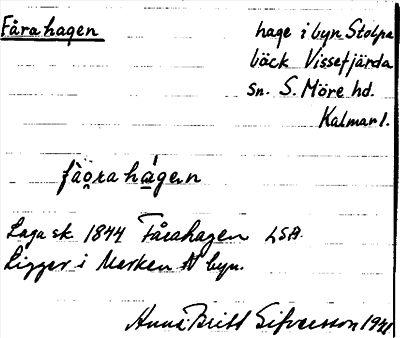 Fårahagen
hage i byn Stolpa
bäck Vissefjärda
sn. S. Möre hd.
Kalmar l.
fàǫra há̱gen
Laga sk 1844 Fårahagen LSA.
Ligger i Marken N byn.
Anna-Britt Sifversson 1941